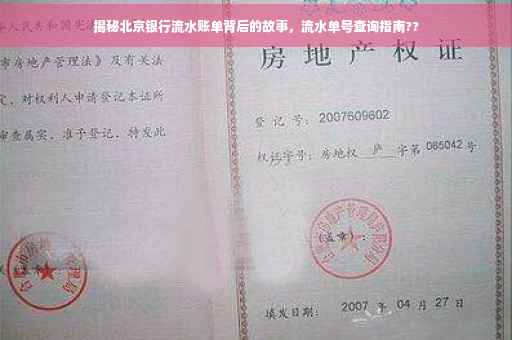 揭秘北京银行流水账单背后的故事，流水单号查询指南??
人民共和国宪法
市房地产管理法》及有关法
定，对权利人申请登记本证所
审查属实，准予登记，特发此
房地产权证
登记号：2007609602
权证字号：房地权 庐 字第 065042 号
(盖章)：
填发日期：2007 年 04 月 27 日